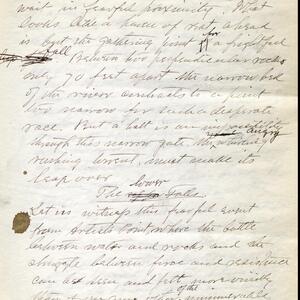 wait in fearful proximity. What
looks like a haven of rest ahead
is but the gathering point for a frightful
fall Between two perpendicular rocks
only 70 feet apart the narrow bed
of the river contracts to a point
too narrow for such a desperate
race. But a halt is an impossibility
through this narrow gate the angry
rushing torrent, must make its
leap over
The lower Falls
Let us witness this fearful event
from Artists Point where the battle
between water and rocks and the
struggle between force and resistance
can be seen and felt more vividly
than from any other of the